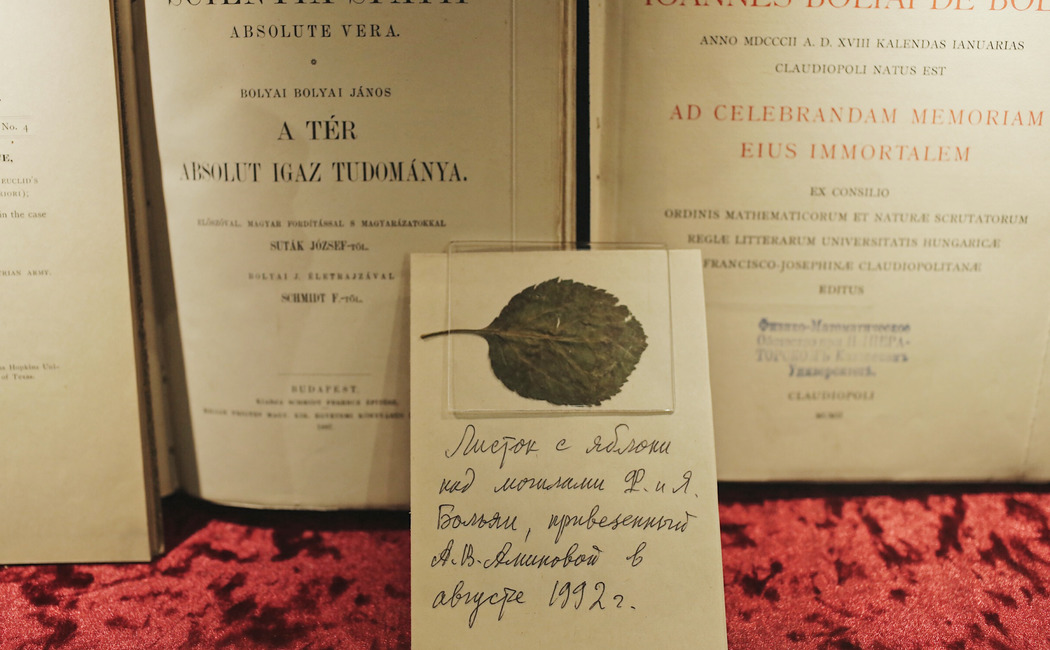 No. 4
EUCLID'S
in the case
TRIAN ARMY.
ns Hopkins Uni-
of Texas.
ABSOLUTE VERA.
BOLYAI BOLYAI JÁNOS
A TÉR
ABSOLUT IGAZ TUDOMÁNYA.
ELŐSZÓVAL, MAGYAR FORDÍTÁSSAL S MAGYARÁZATOKKAL
SUTÁK JÓZSEF-TŐL.
BOLYAI J. ÉLETRAJZÁVAL
SCHMIDT F.-TŐL.
BUDAPEST.
ANNO MDCCCII A. D. XVIII KALENDAS IANUARIAS
CLAUDIOPOLI NATUS EST
AD CELEBRANDAM MEMORIAM
EIUS IMMORTALEM
EX CONSILIO
ORDINIS MATHEMATICORUM ET NATURÆ SCRUTATORUM
REGLÆ LITTERARUM UNIVERSITATIS HUNGARICÆ
FRANCISCO-JOSEPHINÆ CLAUDIOPOLITANÆ
EDITUS
Физико-Математическое
Университетѣ.
CLAUDIOPOLI
Листок с яблони
над могилами Ф. и Я.
Больяи, привезенный
А.В. Аминовой в
августе 1992 г.